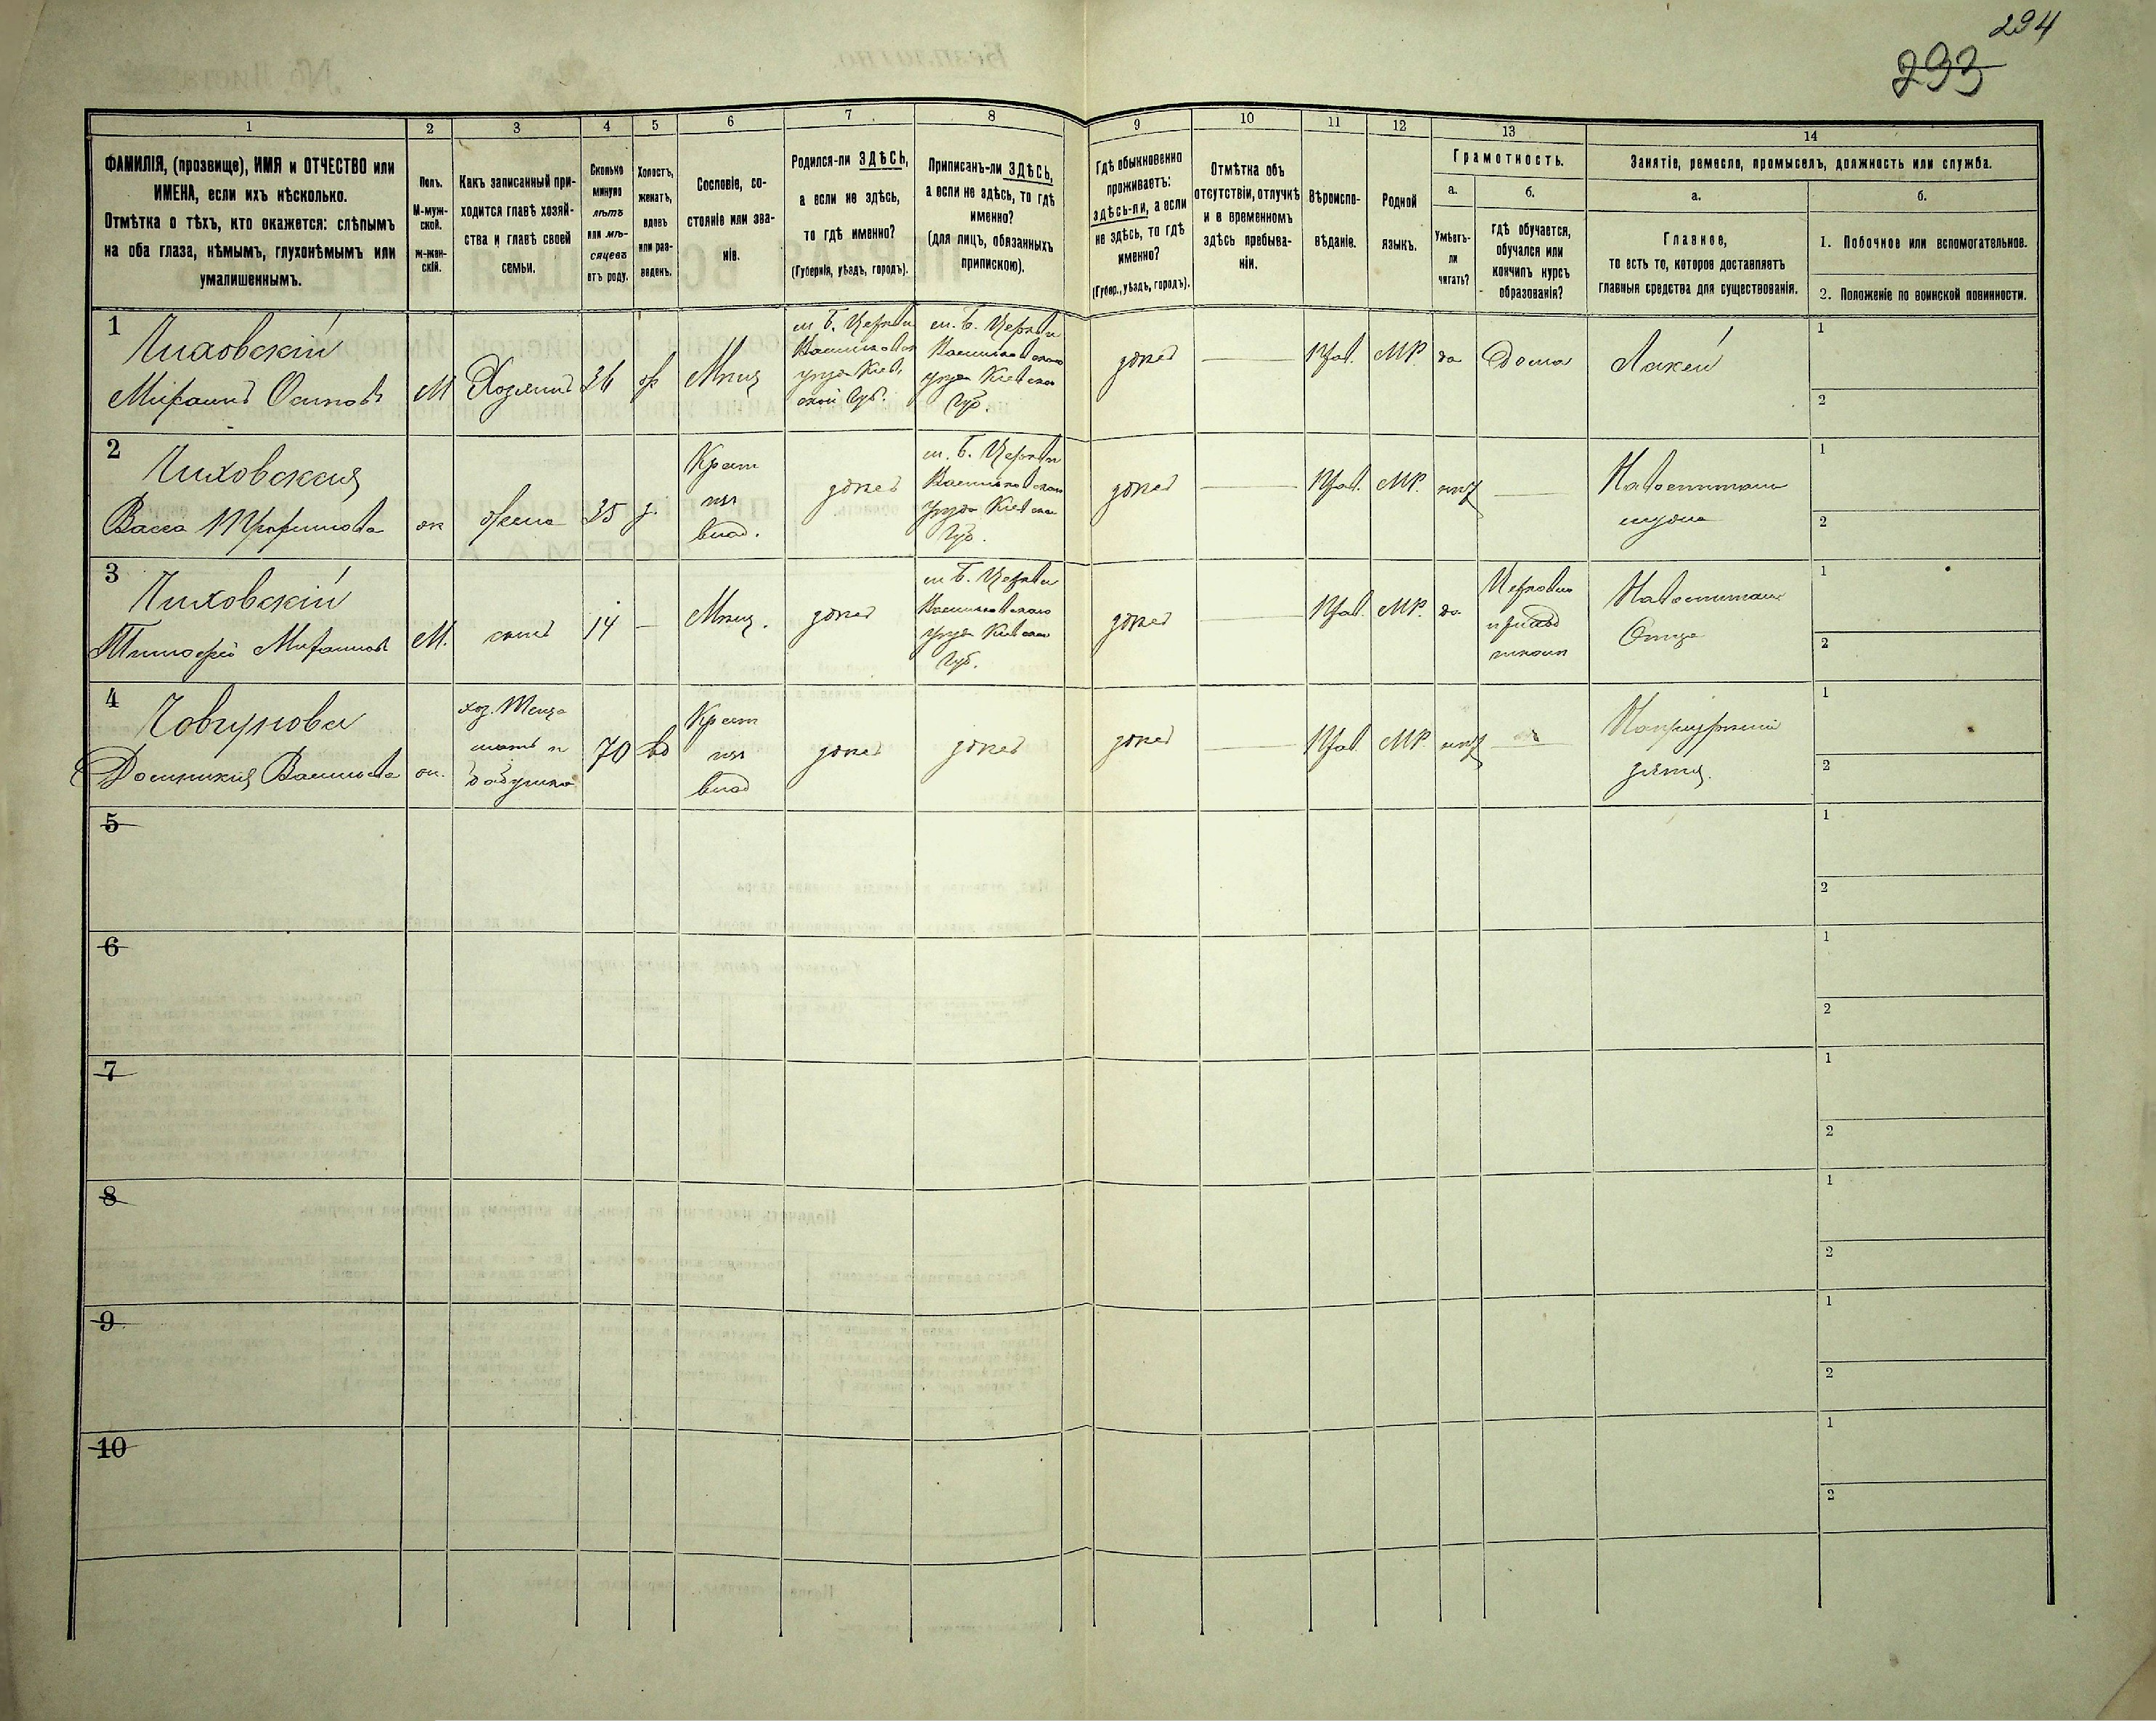 294
293
1
2
3
4
5
6
7
8
9
10
11
12
13
14
ФАМИЛІЯ, (прозвище), ИМЯ и ОТЧЕСТВО или
ИМЕНА, если ихъ нѣсколько.
Отмѣтка о тѣхъ, кто окажется: слѣпымъ
на оба глаза, нѣмымъ, глухонѣмымъ или
умалишеннымъ.
Полъ.
М-муж-
ской.
Ж-жен-
скій.
Какъ записанный при-
ходится главѣ хозяй-
ства и главѣ своей
семьи.
Сколько
минуло
лѣтъ
или мѣ-
сяцевъ
отъ роду.
Холостъ,
женатъ,
вдовъ
или раз-
веденъ.
Сословіе, со-
стояніе или зва-
ніе.
Родился-ли ЗДѢСЬ,
а если не здѣсь,
то гдѣ именно?
(Губернія, уѣздъ, городъ).
Приписанъ-ли ЗДѢСЬ,
а если не здѣсь, то гдѣ
именно?
(для лицъ, обязанныхъ
припискою).
Гдѣ обыкновенно
проживаетъ:
здѣсь-ли, а если
не здѣсь, то гдѣ
именно?
(Губер., уѣздъ, городъ).
Отмѣтка объ
отсутствіи, отлучкѣ
и о временномъ
здѣсь пребыва-
ніи.
Вѣроиспо-
вѣданіе.
Родной
языкъ.
Грамотность.
а.
Умѣетъ-
ли
читать?
б.
гдѣ обучается,
обучался или
кончилъ курсъ
образованія?
Занятіе, ремесло, промыселъ, должность или служба.
а.
Главное,
то есть то, которое доставляетъ
главныя средства для существованія.
б.
1. Побочное или вспомогательное.
2. Положеніе по воинской повинности.
1
Осиповъ
М
Хозяинъ
36
ж
Мѣщ
м. Б. Церкви
Васильковск
уѣзда Кіев
ской Губ.
м. Б. Церкви
Васильковскаго
уѣзда Кіевской
Губ.
здѣсь
Прав.
МР.
да
Дома
Лакей
1
2
2
Васса Трофимова
ж
жена
35
з.
Крест
изъ
влад.
здѣсь
м. Б. Церкви
Васильковскаго
уѣзда Кіевской
Губ.
здѣсь
Прав.
МР.
нѣт
1
2
3
Тимофей
М.
сынъ
14
Мѣщ.
здѣсь
м. Б. Церкви
Васильковскаго
уѣзда Кіевской
Губ.
здѣсь
Прав.
МР.
да
Церковно
приход
школѣ
Отца
1
2
4
Домникія Васильева
ж.
хоз. Теща
мать и
бабушка
70
вд
Крест
изъ
влад
здѣсь
здѣсь
здѣсь
Прав
МР
нѣт
зятя.
1
2
5
1
2
6
1
2
7
1
2
8
1
2
9
1
2
10
1
2